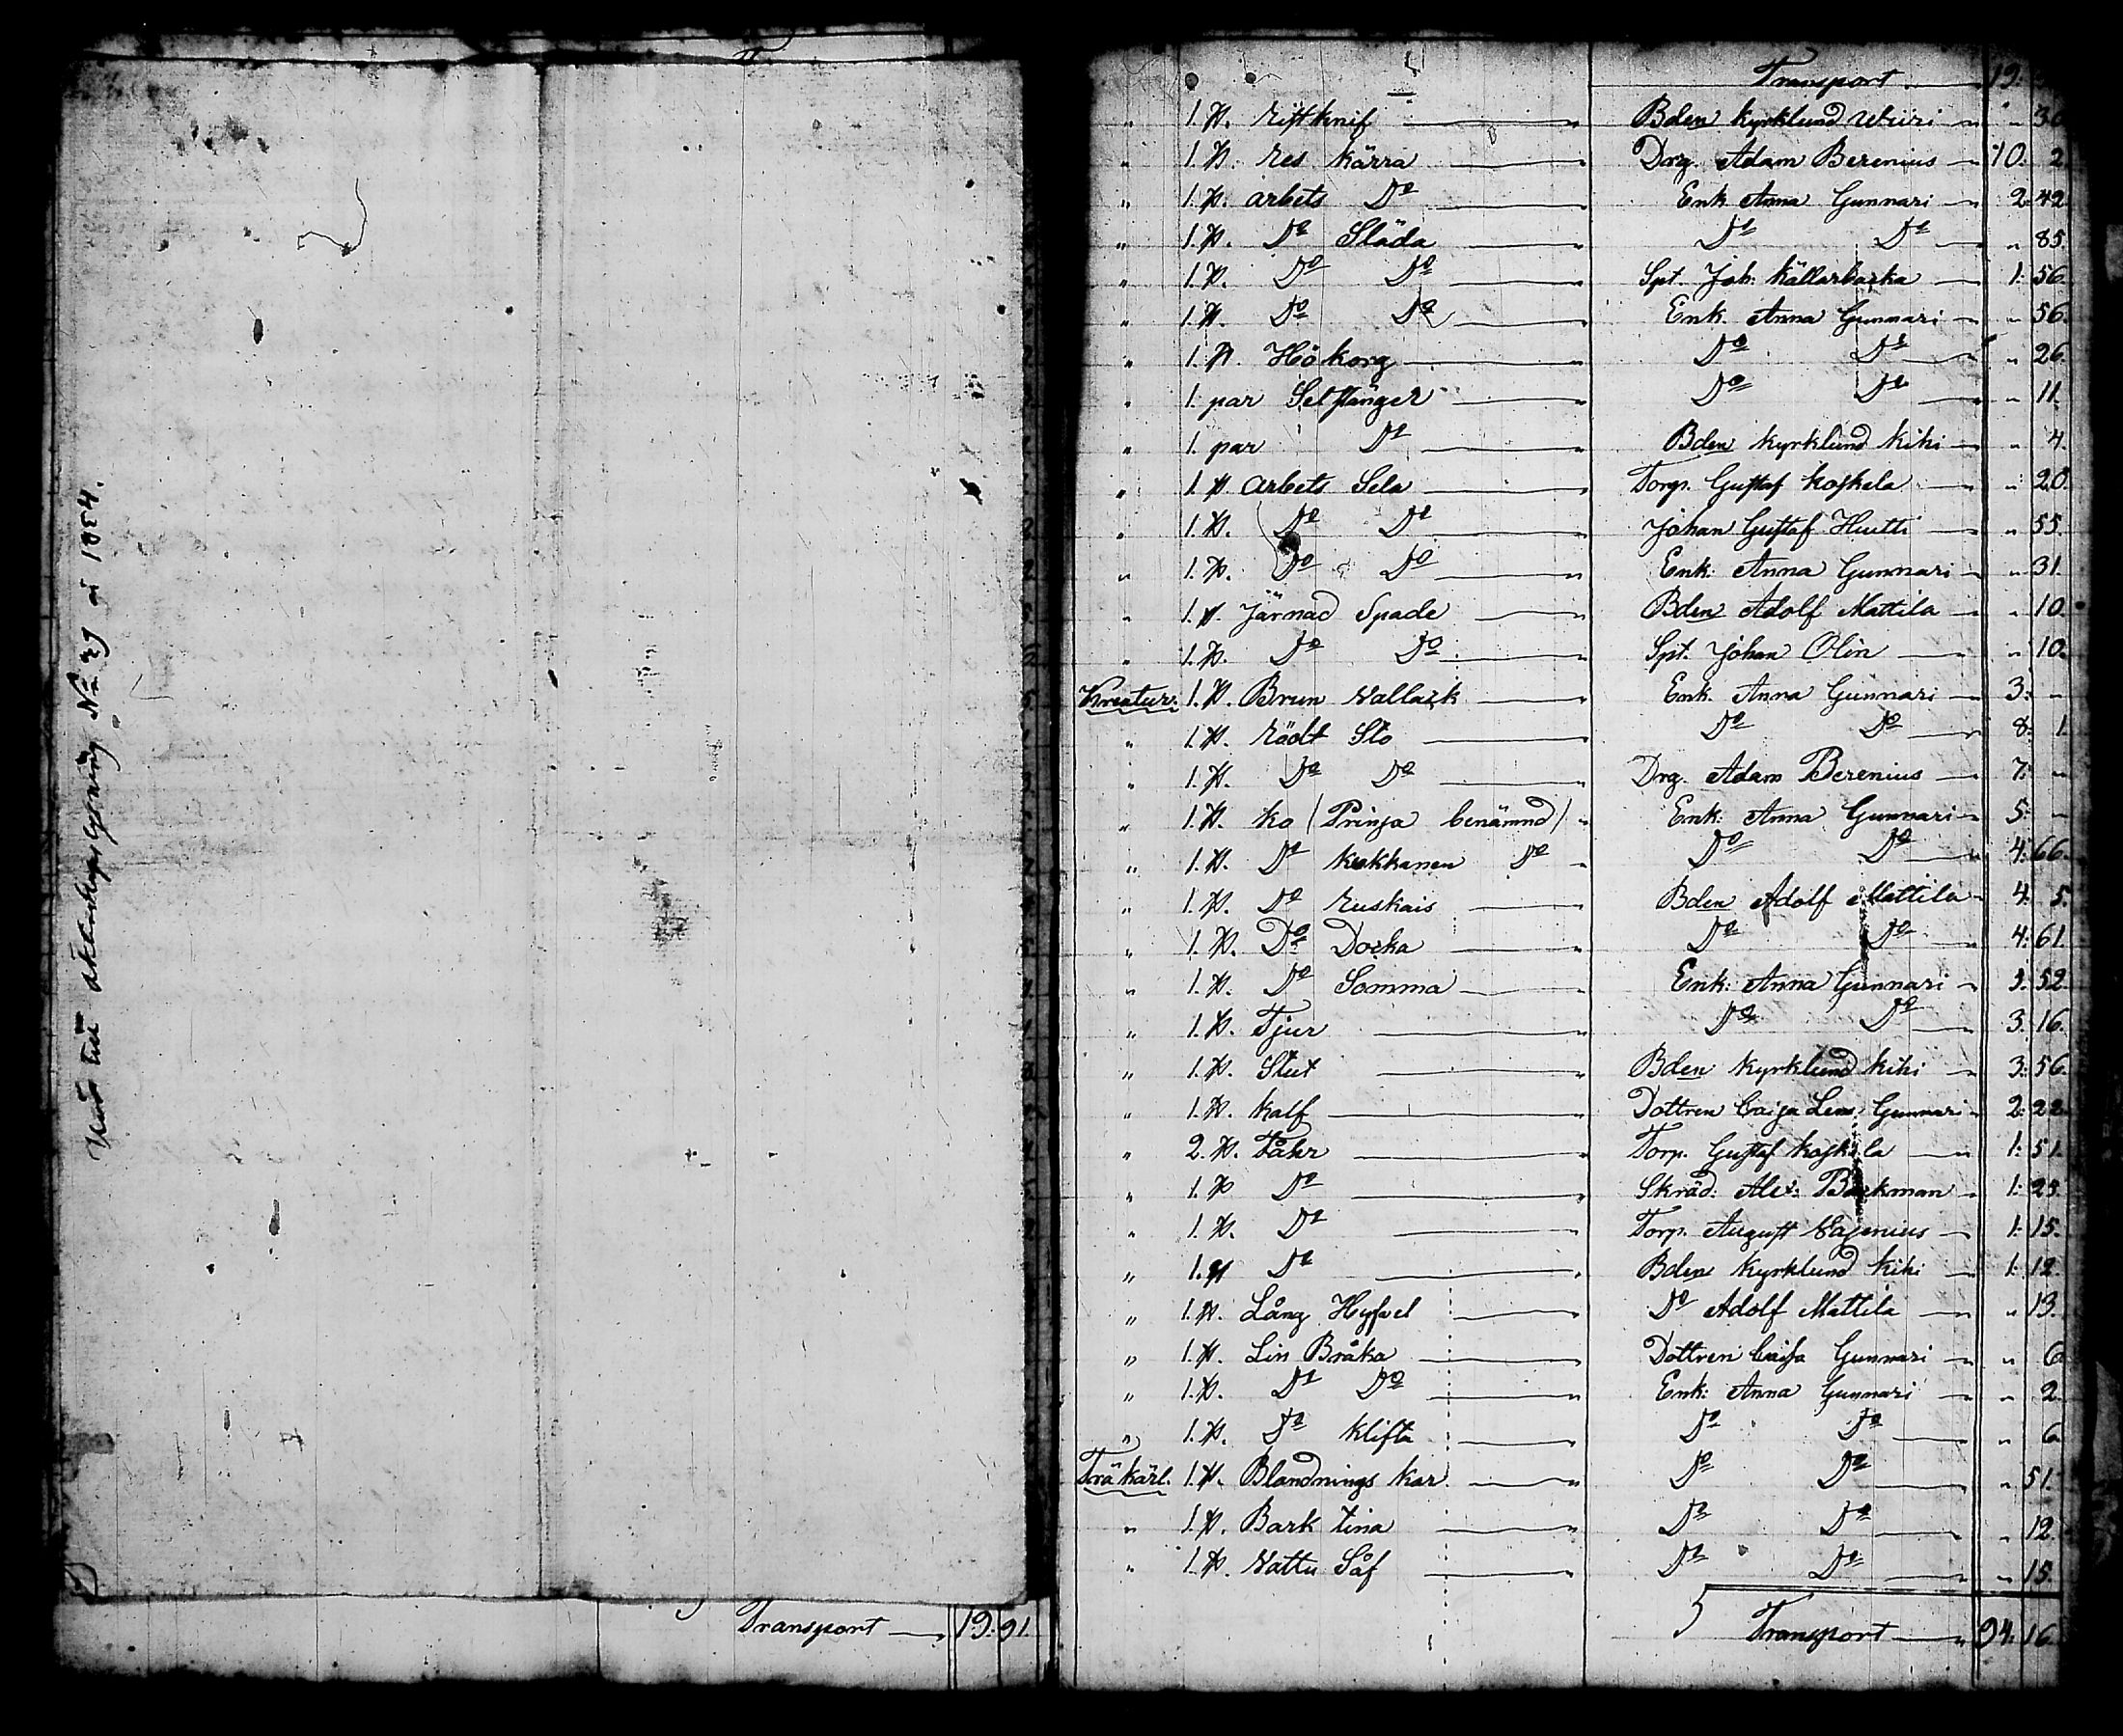 Transport 19. 91.
Transport 19.
" 1. st. ristknif Bden Kyrklund Wiiri " " 30
" 1. st. res kärra Drg. Adam Berenius 10. 2
" 1. st. arbets Do Enk. Anna Gunnari 2. 42
" 1. st. Do Släda Do Do " 85.
" 1. st. Do Do Spt. Joh. Källarbacka 1. 56.
" 1. st. Do Do Enk. Anna Gunnari " 56.
" 1. st. Hökorg Do Do " 26.
" 1. par Selstänger Do Do " 11.
" 1. par Do Bden Kyrklund Kihi " 4.
" 1. st. arbets Sela Torp. Gustaf Koskela " 20.
" 1. st. Do Do Johan Gustaf Hutti " 55.
" 1. st. Do Do Enk: Anna Gunnari " 31.
" 1. st. Järnad Spade Bden Adolf Mattila " 10.
" 1. st. Do Do Spt. Johan Olin " 10.
Kreatur. 1. st. Brun Vallack Enk. Anna Gunnari 3: "
" 1. st. rödt Sto Do Do 8: 1.
" 1. st. Do Do Drg. Adam Berenius 7: "
" 1. st. Ko (Prinja benämnd) Enk: Anna Gunnari 5: "
" 1. st. Do Kukkanen Do Do Do 4: 66.
" 1. st. Do Ruskais Bden Adolf Mattila 4: 5.
" 1. st. Do Docka Do Do 4: 61.
" 1. st. Do Somma Enk: Anna Gunnari 3. 52.
" 1. st. Tjur Do Do 3. 16.
" 1. st. Stut Bden Kyrklund Kihi 3: 56.
" 1. st. Kalf Dottren Caisa Lena Gunnari 2: 22.
" 2. st. Fåhr Torp. Gustaf Koskela 1: 51.
" 1. st. Do Skräd: Alex: Backman 1: 23.
" 1. st. Do Torp. August 1: 15.
" 1. st. Do Bden Kyrklund Kihi 1. 12.
" 1. st. Lång Hyfvel Do Adolf Mattila " 13.
" 1. st. Lin Bråka Dottren Caisa Gunnari " 6
" 1. st. Do Do Enk: Anna Gunnari " 2.
" 1. st. Do Klifta Do Do " 6
Träkärl. 1. st. Blandnings Kar Do Do " 51.
" 1. st. Bark tina Do Do " 12
" 1. st. Vattu Såf Do Do " 15.
Transport 94. 16.